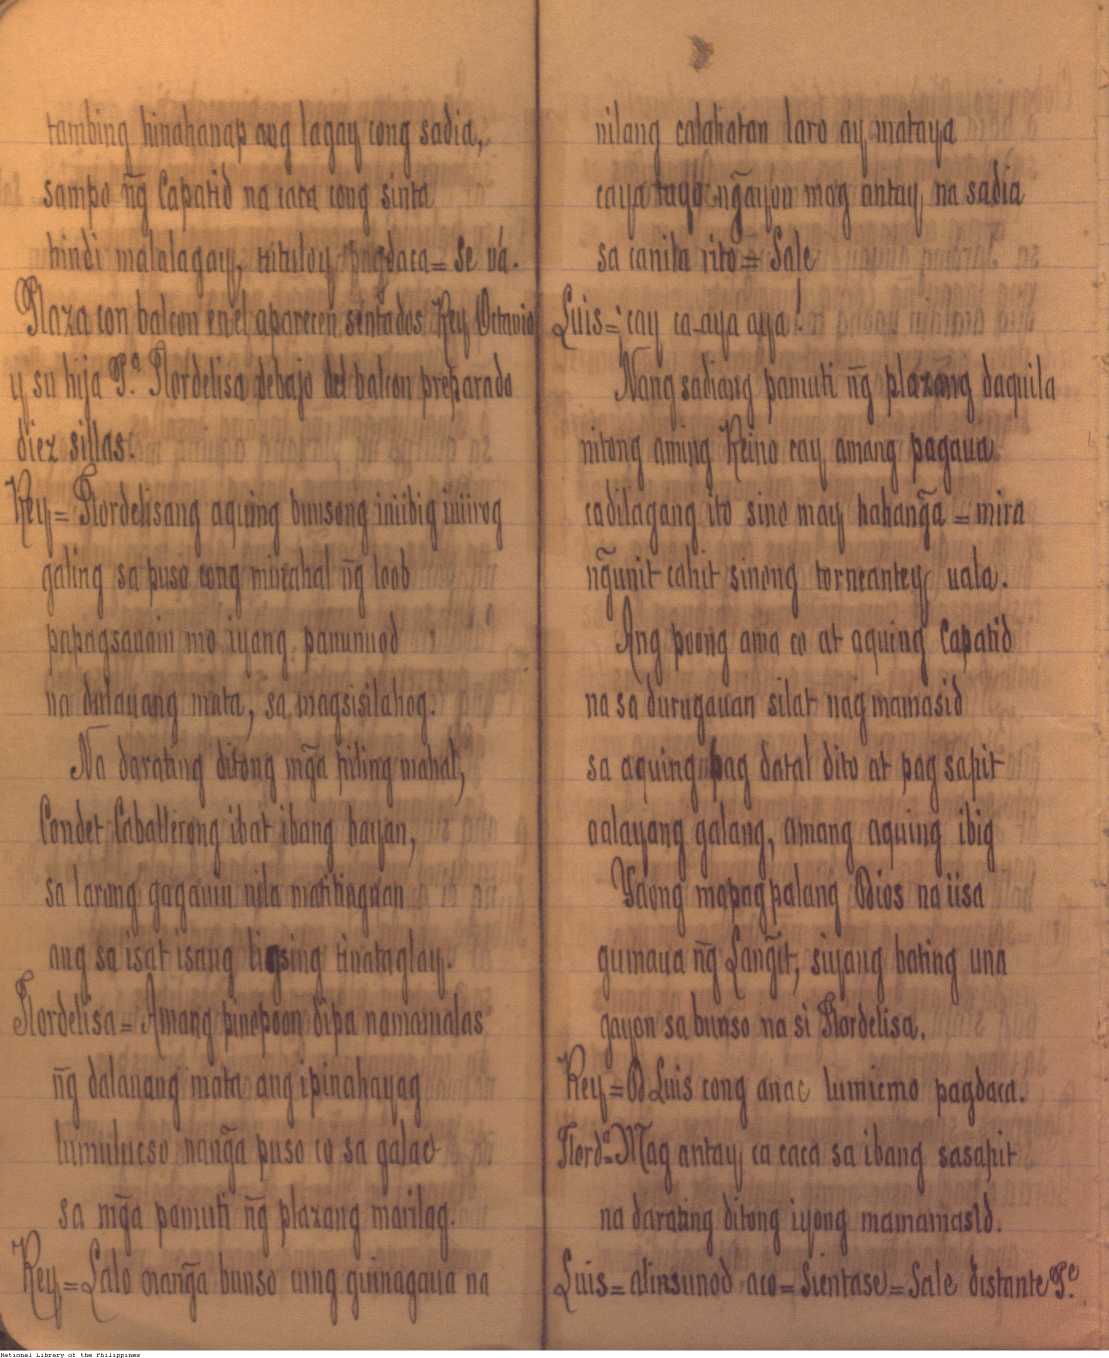 tambing hinahanap ang lagay cong sadia,
sampo n͠g Capatid na caca cong sinta
hindi malalagay, tutuloy pagdaca = Se vá.
Plaza con balcon en el aparecen sentados Rey Octavio
y su hija Pª. Flordelisa debajo del balcon preparado
diez sillas.
Rey = Flordelisang aquing bunsong iniibig iniirog
galing sa puso cong mutahal n͠g loob
papagsauain mo iyang panunuod
na dalauang mata, sa magsisilahog.
Na darating ditong mg̃a piling mahal,
Condet Caballerong ibat ibang bayan,
sa larong gagauin nila matitingnan
ang sa isat isang ligsing tinataglay.
Flordelisa = Amang pinopoon dipa namamalas
n͠g dalauang mata ang ipinahayag
lumulucso nang̃a puso co sa galac
sa mg̃a pamuti n͠g plazang marilag.
Rey = Lalo nang̃a bunso cung guinagaua na
nilang calahatan laro ay mataya
caya tayo ng̃ayon mag antay na sadia
sa canila rito = Sale
Luis = ¡cay ca-aya aya!
Nang sadiang pamuti n͠g plazang daquila
nitong aming Reino cay amang pagaua
cadilagang ito sino may hahang̃a = mira
ng̃unit cahit sinong torneantey uala.
Ang poong ama co at aquing Capatid
na sa durugauan silat nag mamasid
sa aquing pag datal dito at pag sapit
aalayang galang, amang aquing ibig
Yaong mapagpalang Dios na iisa
gumaua n͠g Lang̃it, siyang bating una
gayon sa bunso na si Flordelisa.
Rey = D Luis cong anac lumicmo pagdaca.
Flordª = Mag antay ca caca sa ibang sasapit
na darating ditong iyong mamamasid.
Luis = alinsunod aco = Sientase = Sale distante Pᵉ.
National Library of the Philippines